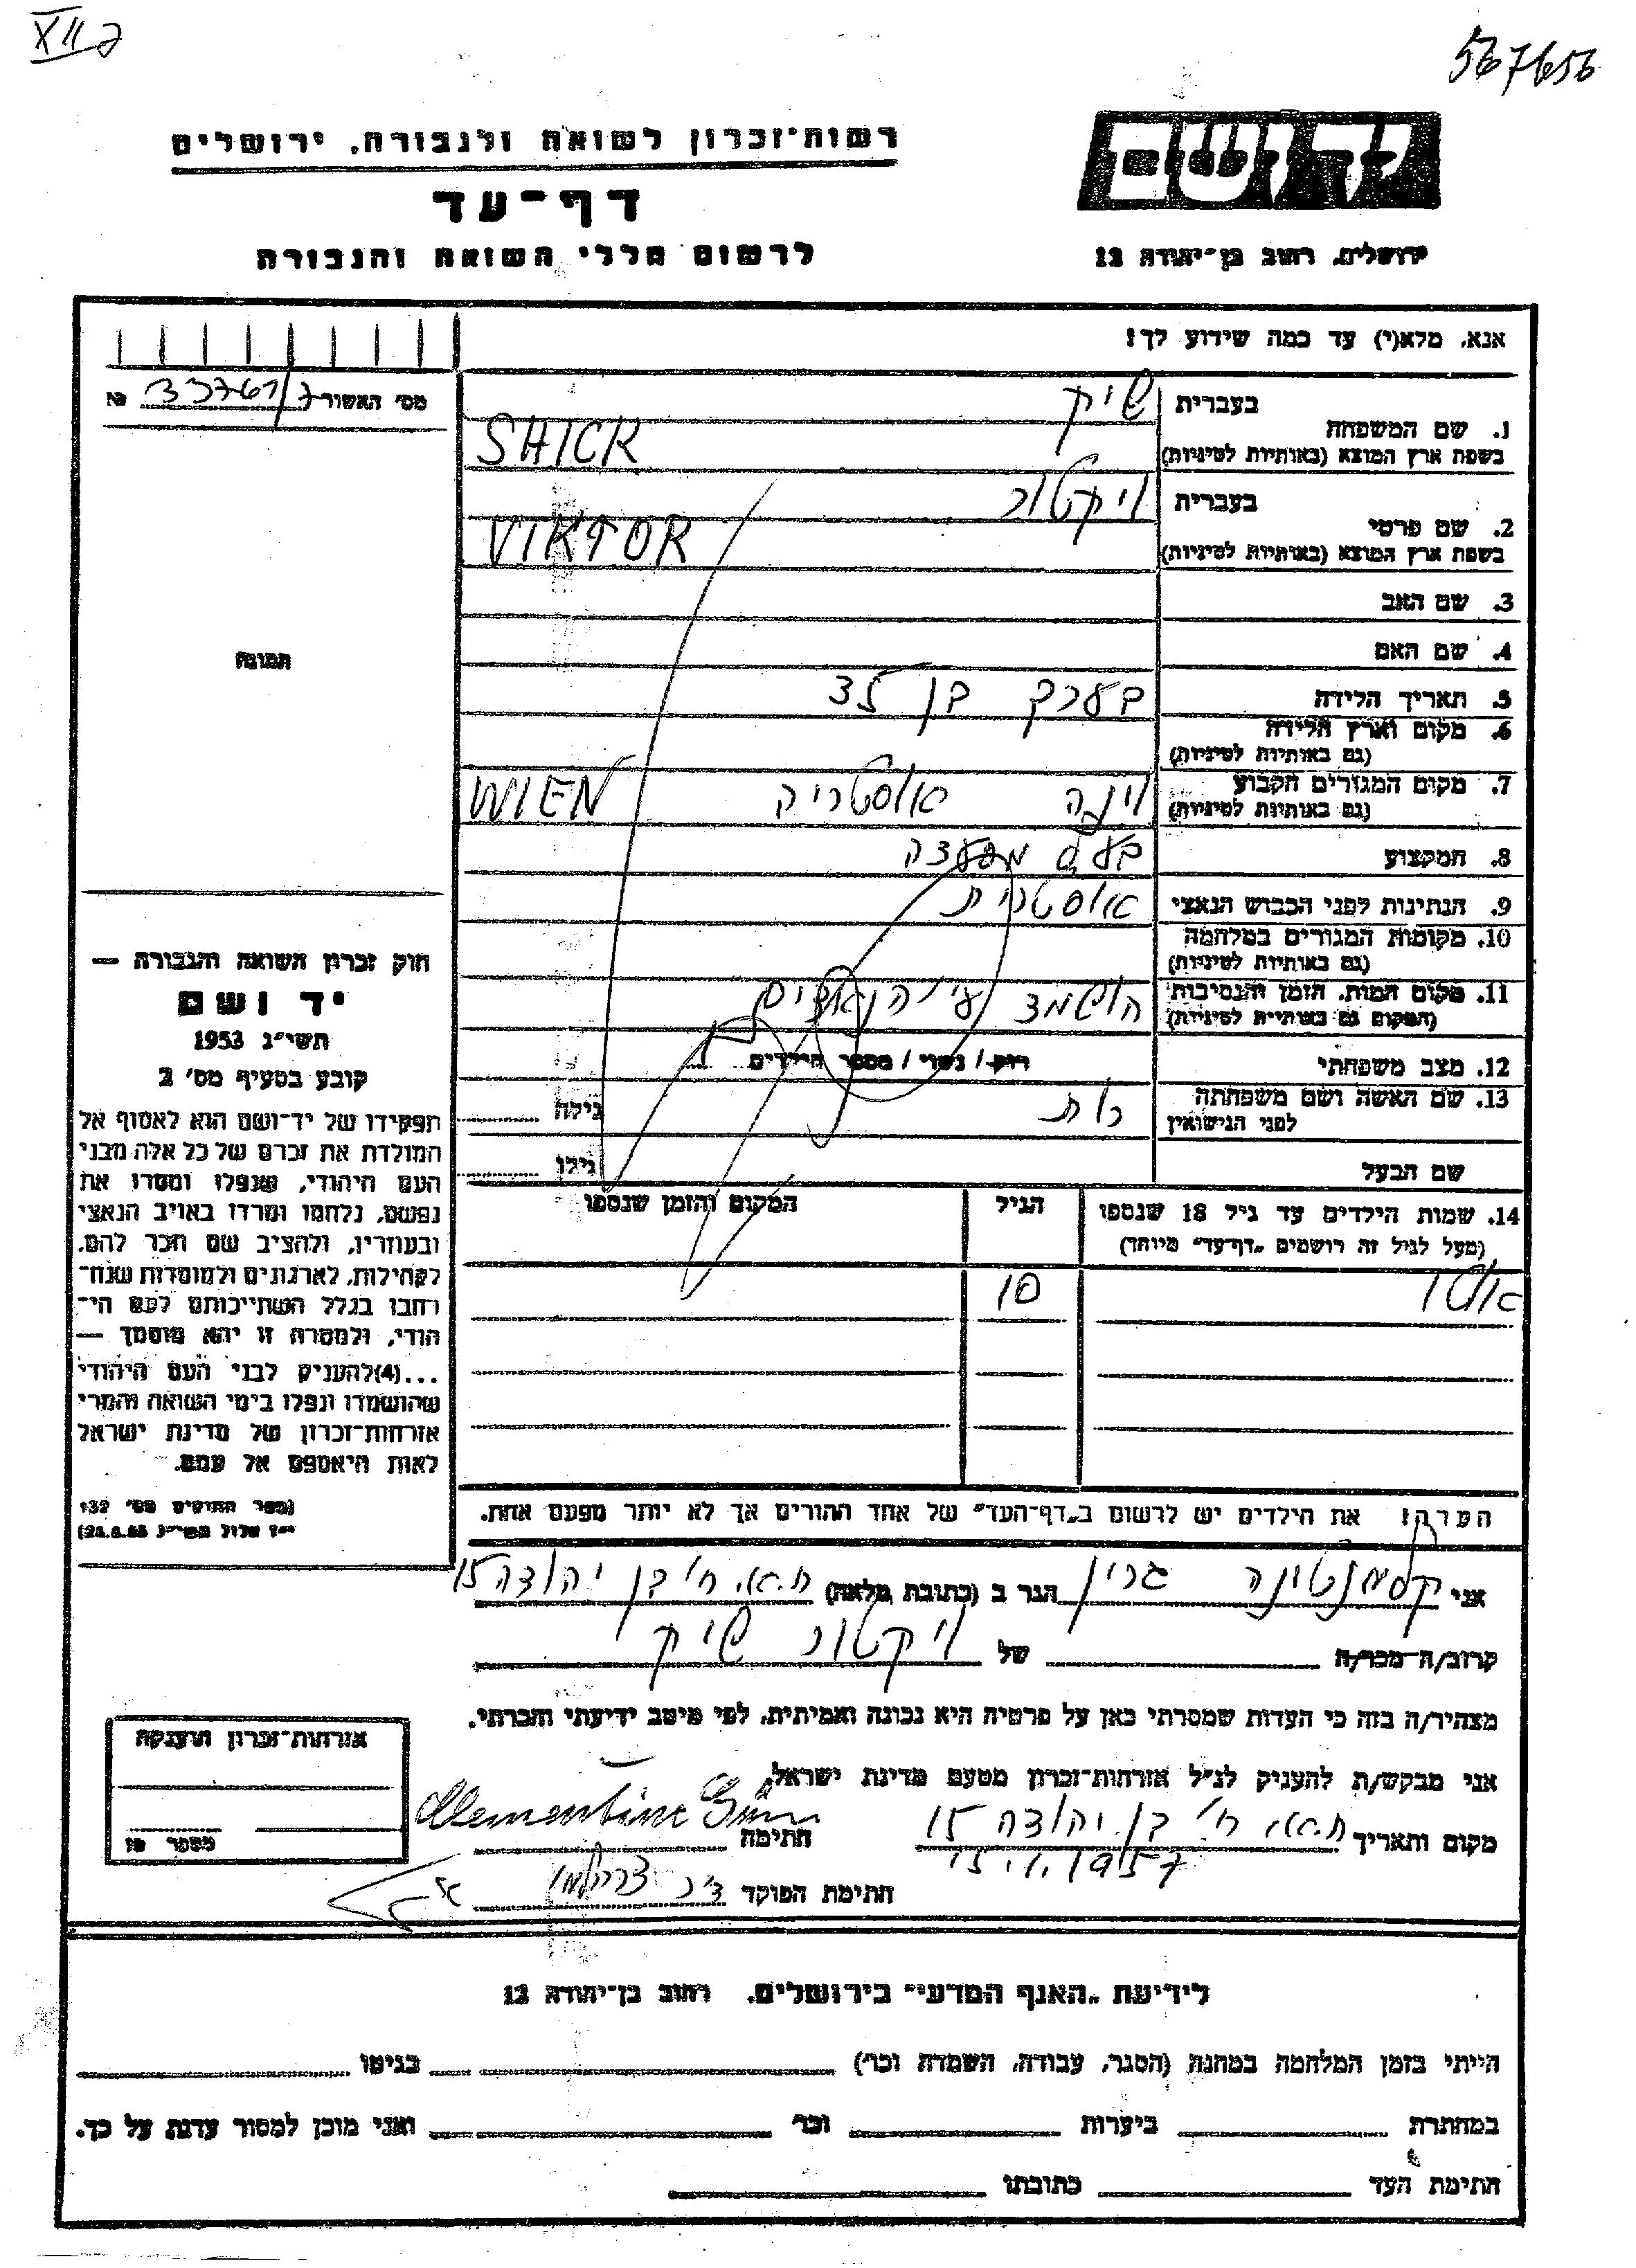 XII
567656
רשות־זכרון לשואה ולגבורה, ירושלים
דף־עד
לרשום חללי השואה והגבורה
יד ושם
ירושלים, רחוב בן־יהודה 12
אנא, מלא(י) עד כמה שידוע לך!
מס' האשור 33761/7 №
1. שם המשפחה
בעברית שיק
בשפת ארץ המוצא (באותיות לטיניות) SHICK
2. שם פרטי
בעברית ויקטור
בשפת ארץ המוצא (באותיות לטיניות) VIKTOR
3. שם האב
4. שם האם
5. תאריך הלידה בערך בן 35
6. מקום וארץ הלידה
(גם באותיות לטיניות)
7. מקום המגורים הקבוע וינה אוסטריה WIEN
(גם באותיות לטיניות)
8. המקצוע בעל מפעצה
9. הנתינות לפני הכבוש הנאצי אוסטרית
10. מקומות המגורים במלחמה
(גם באותיות לטיניות)
11. מקום המות, הזמן והנסיבות הושמד ע"י הנאצים
(המקום גם באותיות לטיניות)
12. מצב משפחתי רוק / נשוי / מספר הילדים
13. שם האשה ושם משפחתה רות גילה
לפני הנישואין
שם הבעל גילו
14. שמות הילדים עד גיל 18 שנספו הגיל המקום והזמן שנספו
(מעל לגיל זה רושמים „דף־עד" מיוחד)
10
הערה: את הילדים יש לרשום ב„דף־העד" של אחד ההורים אך לא יותר מפעם אחת.
תמונה
חוק זכרון השואה והגבורה —
יד ושם
תשי"ג 1953
קובע בסעיף מס' 2
תפקידו של יד־ושם הוא לאסוף אל
המולדת את זכרם של כל אלה מבני
העם היהודי, שנפלו ומסרו את
נפשם, נלחמו ומרדו באויב הנאצי
ובעוזריו, ולהציב שם וזכר להם,
לקהילות, לארגונים ולמוסדות שנח־
רבו בגלל השתייכותם לעם הי־
הודי, ולמטרה זו יהא מוסמך —
...(4)להעניק לבני העם היהודי
שהושמדו ונפלו בימי השואה והמרי
אזרחות־זכרון של מדינת ישראל
לאות היאספם אל עמם.
(ספר החוקים מס' 132
אני קלמנטינה גרין הגר ב (כתובת מלאה) ת.א. רח' בן יהודה 15
קרוב/ה מכר/ה של ויקטור שיק
מצהיר/ה בזה כי העדות שמסרתי כאן על פרטיה היא נכונה ואמיתית, לפי מיטב ידיעתי והכרתי.
אני מבקש/ת להעניק לנ"ל אזרחות־זכרון מטעם מדינת ישראל.
מקום ותאריך ת.א. רח' בן יהודה 15 חתימה Clementine Grün
15.1.1957
חתימת הפוקד
אזרחות־זכרון הוענקה
לידיעת „האגף המדעי" בירושלים, רחוב בן־יהודה 12
הייתי בזמן המלחמה במחנה (הסגר, עבודה, השמדה וכו') בגיטו
במחתרת ביערות וכו' ואני מוכן למסור עדות על כך.
חתימת העד כתובתו